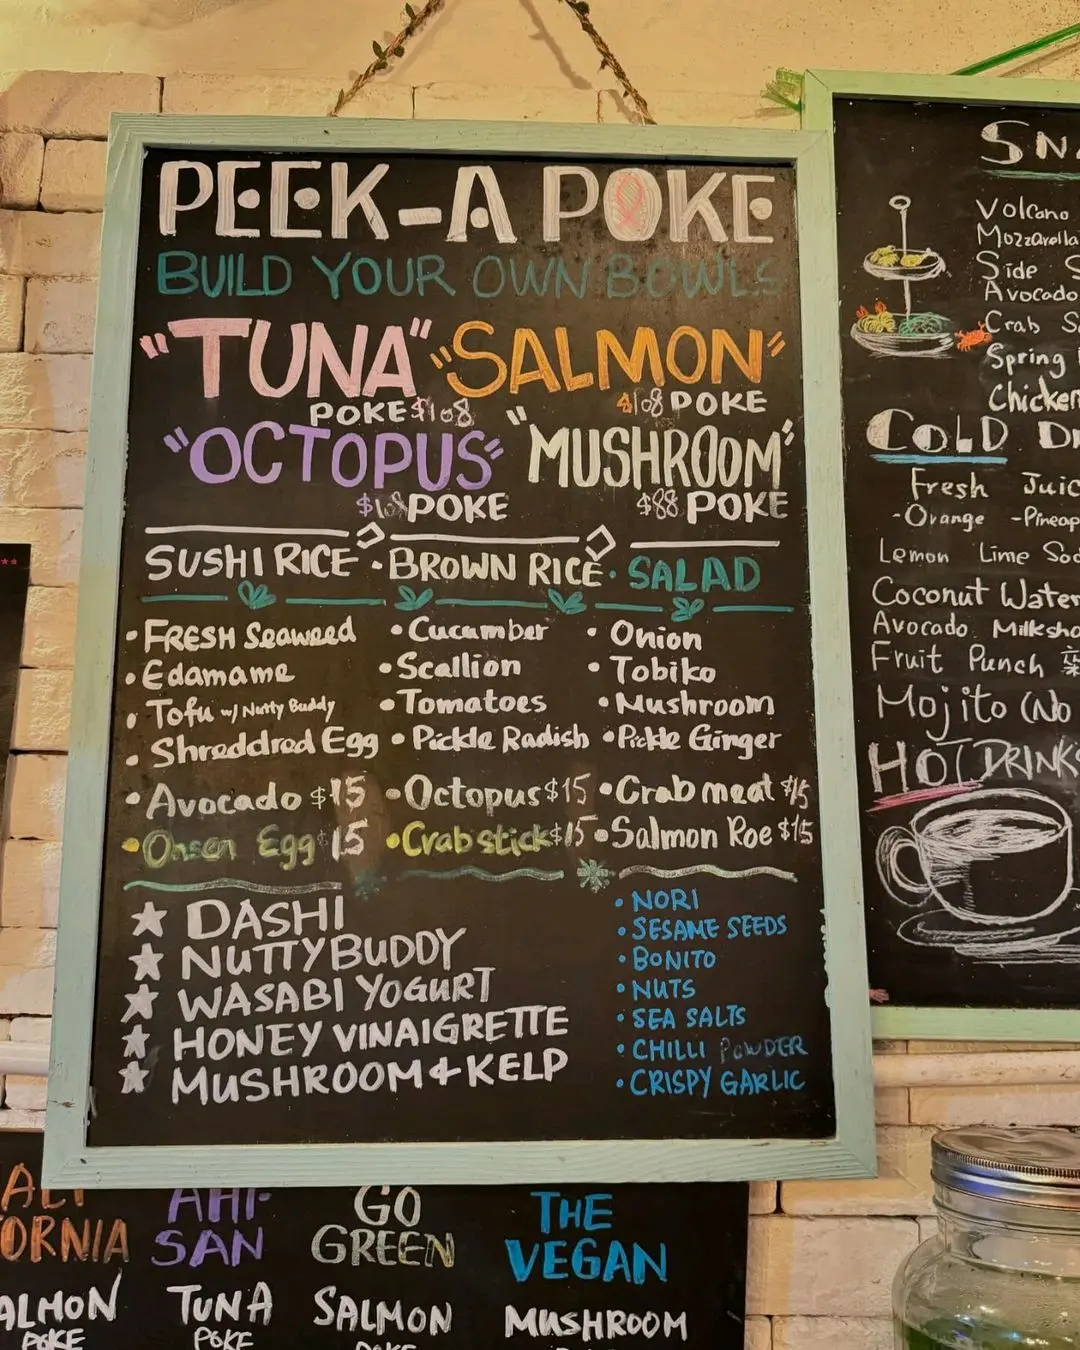 PEEK-A POKE
BUILD YOUR OWN BOWLS
"TUNA" "SALMON"
POKE $108 $108 POKE
"OCTOPUS" "MUSHROOM"
POKE $88 POKE
SUSHI RICE · BROWN RICE · SALAD
• FRESH Seaweed • Cucumber • Onion
• Edamame • Scallion • Tobiko
• Tofu w/ Nutty Buddy • Tomatoes • Mushroom
• Shreddred Egg • Pickle Radish • Pickle Ginger
• Avocado $15 • Octopus $15 • Crab meat $15
• Onsen Egg $15 • Crab stick $15 • Salmon Roe $15
★ DASHI
★ NUTTY BUDDY
★ WASABI YOGURT
★ HONEY VINAIGRETTE
★ MUSHROOM & KELP
• NORI
• SESAME SEEDS
• BONITO
• NUTS
• SEA SALTS
• CHILLI POWDER
• CRISPY GARLIC
Volcano
Mozzarella
Side
Avocado
Crab
Spring
Chicken
COLD
Fresh Juic
-Orange -Pineap
Lemon Lime Sod
Coconut Water
Avocado Milksha
Fruit Punch
Mojito (No
HOT DRINKS
ORNIA
ALMON
POKE
AHI-
SAN
TUNA
POKE
GO
GREEN
SALMON
POKE
THE
VEGAN
MUSHROOM